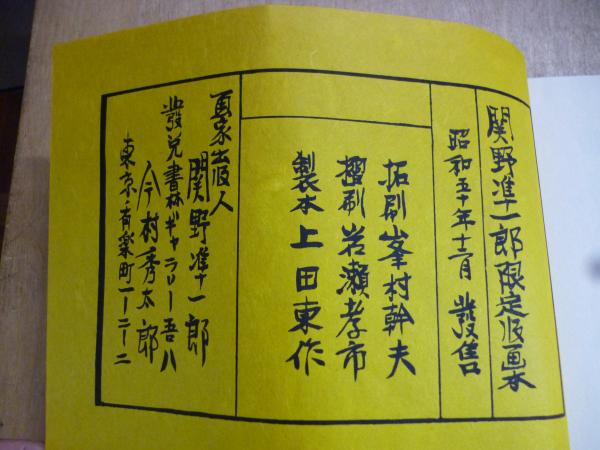 関野凖一郎限定版画本
昭和五十年十二月 發售
拓刷 峯村幹夫
摺刷 岩瀬孝市
製本 上田東作
画家出版人
関野凖一郎
發兌書林ギャラリー吾八
今村秀太郎
東京・有楽町一ー二ー二